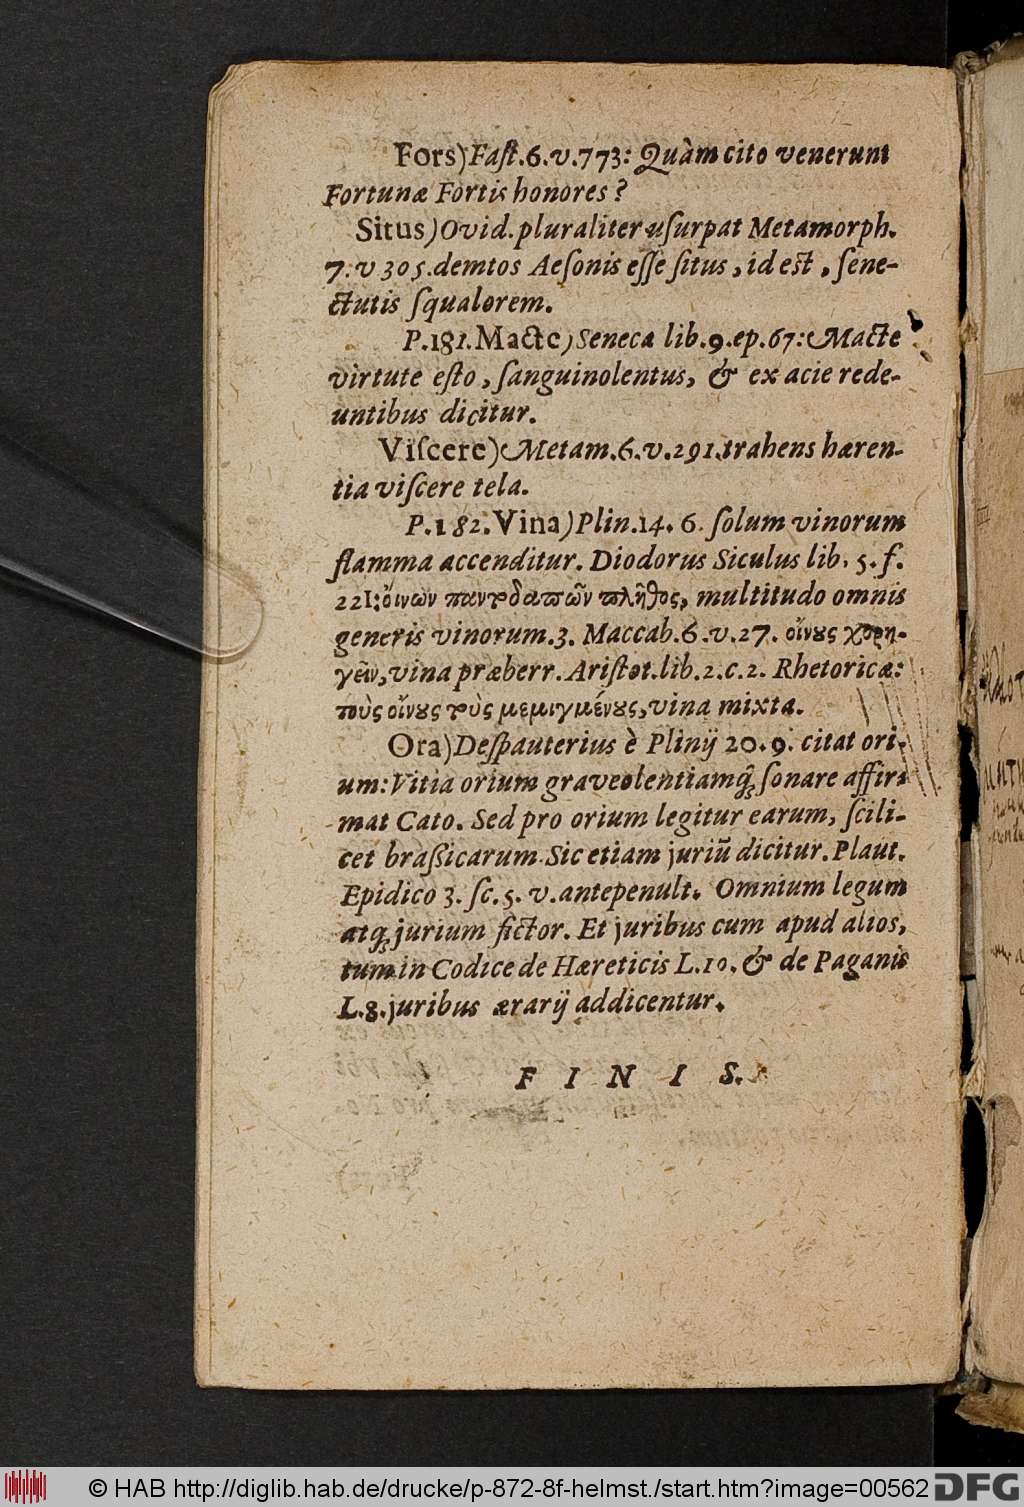 Fors) Faſt. 6. v. 773: Quàm cito venerunt
Fortunæ Fortis honores?
Situs) Ovid. pluraliter uſurpat Metamorph.
7. v 305. demtos Aeſonis eſſe ſitus, id est, ſene-
ctutis ſqualorem.
P. 181. Macte) Seneca lib. 9. ep. 67: Macte
virtute eſto, ſanguinolentus, & ex acie rede-
untibus dicitur.
Viſcere) Metam. 6. v. 291. trahens hæren-
tia viſcere tela.
P. 182. Vina) Plin. 14. 6. ſolum vinorum
flamma accenditur. Diodorus Siculus lib. 5. f.
221: ὄινων παντοδαπῶν πλῆθος, multitudo omnis
generis vinorum. 3. Maccab. 6. v. 27. οἴνους χορη-
γεῖν, vina præberr. Ariſtot. lib. 2. c. 2. Rhetoricæ:
τοὺς οἴνους τοὺς μεμιγμένους, vina mixta.
Ora) Deſpauterius è Plinij 20. 9. citat ori-
um: Vitia orium graveolentiamq́; ſonare affir-
mat Cato. Sed pro orium legitur earum, ſcili-
cet braßicarum. Sic etiam juriū dicitur. Plaut.
Epidico 3. ſc. 5. v. antepenult. Omnium legum
atq; jurium fictor. Et juribus cum apud alios,
tum in Codice de Hæreticis L. 10. & de Paganis
L. 8. juribus ærarij addicentur.
F I N I S.
© HAB http://diglib.hab.de/drucke/p-872-8f-helmst./start.htm?image=00562
DFG